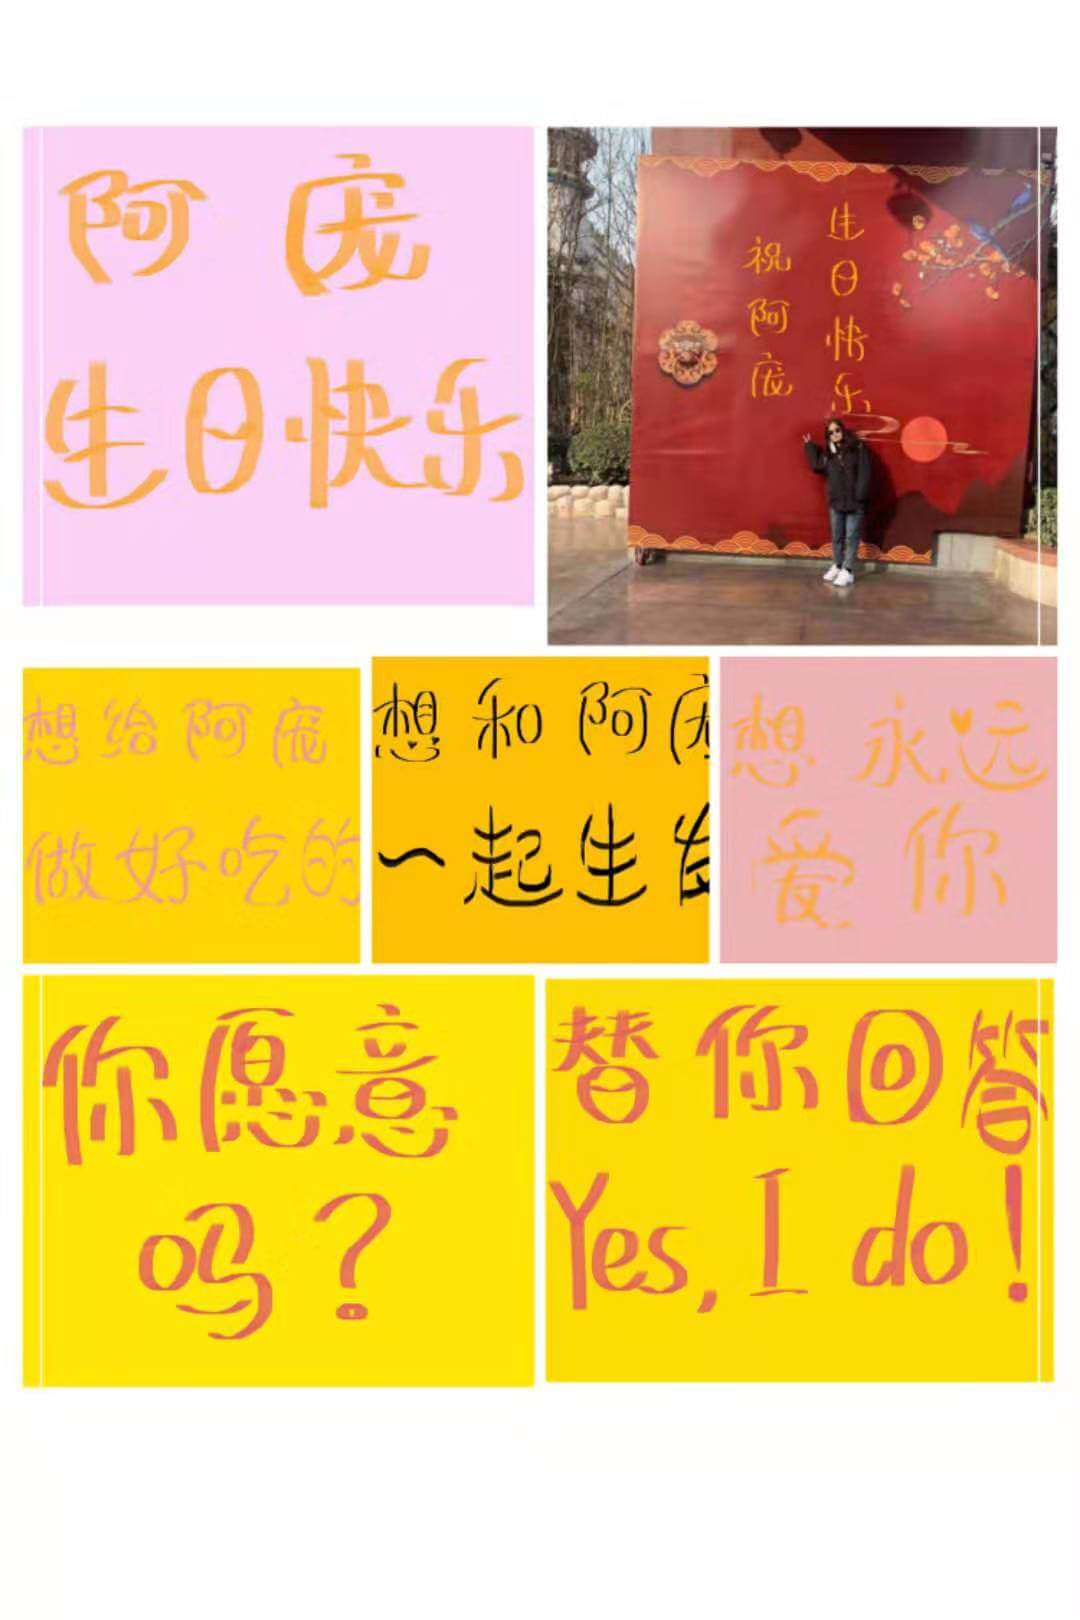 阿庞
生日快乐
祝阿庞
生日快乐
想给阿庞
做好吃的
想和阿庞
一起生
想永远
爱你
你愿意
吗？
替你回答
Yes, I do!